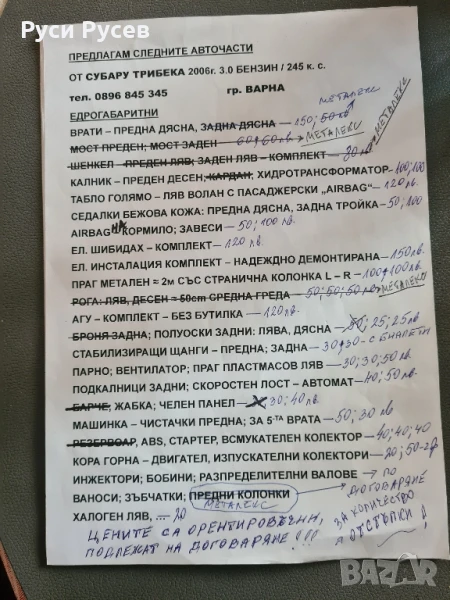 Руси Русев
ПРЕДЛАГАМ СЛЕДНИТЕ АВТОЧАСТИ
ОТ СУБАРУ ТРИБЕКА 2006г. 3.0 БЕНЗИН / 245 к. с.
тел. 0896 845 345 гр. ВАРНА
ЕДРОГАБАРИТНИ
МЕТАЛЕКС
ВРАТИ – ПРЕДНА ДЯСНА, ЗАДНА ДЯСНА – 150; 50 лв
МОСТ ПРЕДЕН; МОСТ ЗАДЕН – 60+60 лв. МЕТАЛЕКС МЕТАЛЕКС
ШЕНКЕЛ – ПРЕДЕН ЛЯВ; ЗАДЕН ЛЯВ – КОМПЛЕКТ – 30 лв
КАЛНИК – ПРЕДЕН ДЕСЕН; КАРДАН; ХИДРОТРАНСФОРМАТОР – 100; 100
ТАБЛО ГОЛЯМО – ЛЯВ ВОЛАН С ПАСАДЖЕРСКИ „AIRBAG“ – 120 лв.
СЕДАЛКИ БЕЖОВА КОЖА: ПРЕДНА ДЯСНА, ЗАДНА ТРОЙКА – 50; 100
AIRBAG НА КОРМИЛО; ЗАВЕСИ – 50; 100 лв.
ЕЛ. ШИБИДАХ – КОМПЛЕКТ – 120 лв.
ЕЛ. ИНСТАЛАЦИЯ КОМПЛЕКТ – НАДЕЖДНО ДЕМОНТИРАНА – 150 лв.
ПРАГ МЕТАЛЕН ≈ 2м СЪС СТРАНИЧНА КОЛОНКА L – R – 100+100 лв.
РОГА: ЛЯВ, ДЕСЕН ≈ 50cm СРЕДНА ГРЕДА – 50; 50; 50 лв МЕТАЛЕКС
АГУ – КОМПЛЕКТ – БЕЗ БУТИЛКА – 120 лв.
БРОНЯ ЗАДНА; ПОЛУОСКИ ЗАДНИ: ЛЯВА, ДЯСНА – 50; 25; 25 лв
СТАБИЛИЗИРАЩИ ЩАНГИ – ПРЕДНА; ЗАДНА – 30+30 – С БИАЛЕТИ
ПАРНО; ВЕНТИЛАТОР; ПРАГ ПЛАСТМАСОВ ЛЯВ – 30; 30; 50 лв
ПОДКАЛНИЦИ ЗАДНИ; СКОРОСТЕН ЛОСТ – АВТОМАТ – 40; 50 лв.
БАРЧЕ, ЖАБКА; ЧЕЛЕН ПАНЕЛ – 30; 40 лв.
МАШИНКА – ЧИСТАЧКИ ПРЕДНА; ЗА 5-ТА ВРАТА – 50; 30 лв
РЕЗЕРВОАР, ABS, СТАРТЕР, ВСМУКАТЕЛЕН КОЛЕКТОР – 40; 40; 40
КОРА ГОРНА – ДВИГАТЕЛ, ИЗПУСКАТЕЛНИ КОЛЕКТОРИ – 20; 50-2бр
ИНЖЕКТОРИ; БОБИНИ; РАЗПРЕДЕЛИТЕЛНИ ВАЛОВЕ → ПО
ВАНОСИ; ЗЪБЧАТКИ; ПРЕДНИ КОЛОНКИ → ДОГОВАРЯНЕ
МЕТАЛЕКС
ХАЛОГЕН ЛЯВ, .... 20
ЗА КОЛИЧЕСТВО
ОТСТЪПКИ!
ЦЕНИТЕ СА ОРЕНТИРОВЪЧНИ,
ПОДЛЕЖАТ НА ДОГОВАРЯНЕ!!!
BAZAR.bg